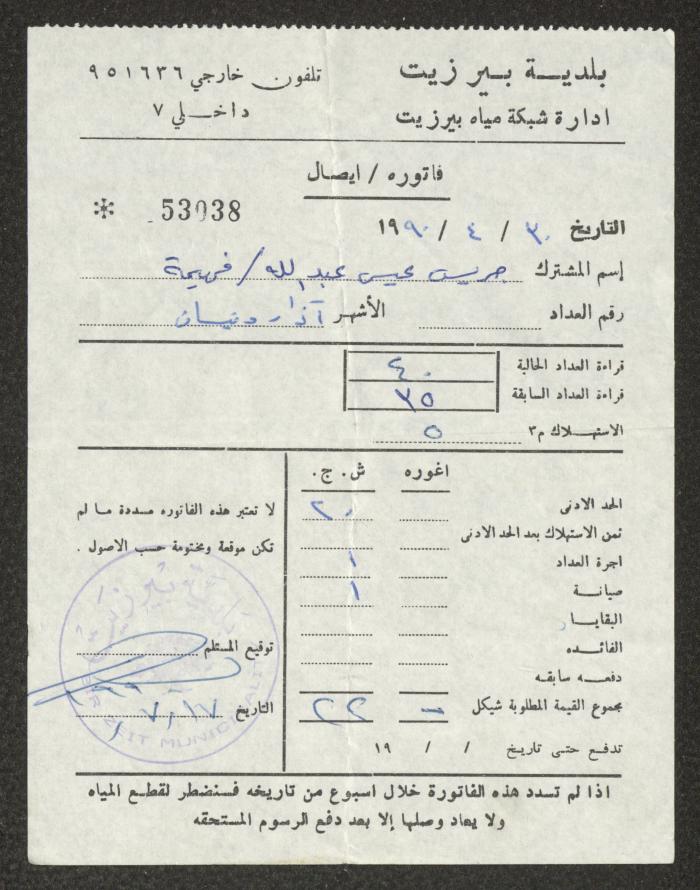 بلدية بير زيت
ادارة شبكة مياه بيرزيت
تلفون خارجي ٩٥١٦٣٦
داخلي ٧
فاتوره / ايصال
53038 *
التاريخ ٣٠ / ٤ / ١٩٩٠
إسم المشترك جريس عيسى عبد الله / فهيمة
رقم العداد الأشهر آذار ونيسان
قراءة العداد الحالية ٤٠
قراءة العداد السابقة ٣٥
الاستهلاك م٣ ٥
اغوره ش. ج.
الحد الادنى ٢٠
ثمن الاستهلاك بعد الحد الادنى
اجرة العداد ١
صيانة ١
البقايا
الفائده
دفعه سابقه
مجموع القيمة المطلوبة شيكل — ٢٢
تدفع حتى تاريخ / / ١٩
لا تعتبر هذه الفاتوره مسددة ما لم
تكن موقعة ومختومة حسب الاصول .
توقيع المستلم
التاريخ ٧/١٧
بلدية بيرزيت
BIR ZEIT MUNICIPALITY
اذا لم تسدد هذه الفاتورة خلال اسبوع من تاريخه فسنضطر لقطع المياه
ولا يعاد وصلها إلا بعد دفع الرسوم المستحقه